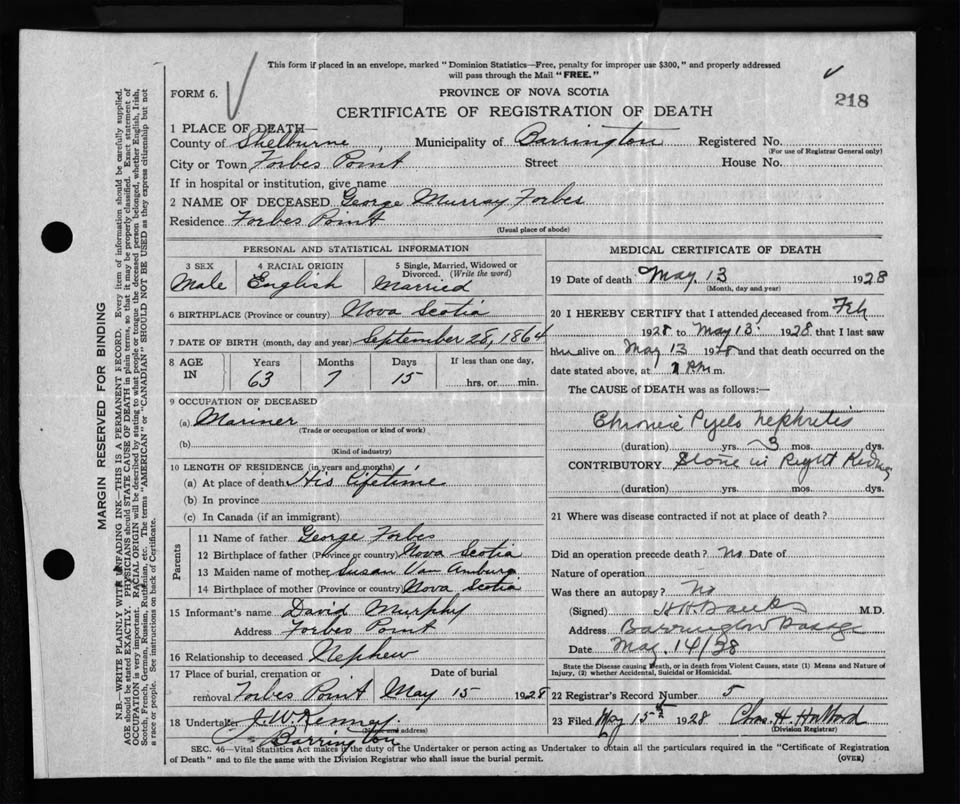 This form if placed in an envelope, marked "Dominion Statistics—Free, penalty for improper use $300," and properly addressed
will pass through the Mail "FREE."
FORM 6.
PROVINCE OF NOVA SCOTIA
218
CERTIFICATE OF REGISTRATION OF DEATH
1 PLACE OF DEATH—
County of Shelburne, Municipality of Barrington Registered No.
(For use of Registrar General only)
City or Town Forbes Point Street House No.
If in hospital or institution, give name
2 NAME OF DECEASED George Murray Forbes
Residence Forbes Point
(Usual place of abode)
PERSONAL AND STATISTICAL INFORMATION
3 SEX 4 RACIAL ORIGIN 5 Single, Married, Widowed or
Divorced. (Write the word)
Male English Married
6 BIRTHPLACE (Province or country) Nova Scotia
7 DATE OF BIRTH (month, day and year) September 28, 1864
8 AGE IN Years Months Days If less than one day,
63 7 15 hrs. or min.
9 OCCUPATION OF DECEASED
(a) Mariner
(Trade or occupation or kind of work)
(b)
(Kind of industry)
10 LENGTH OF RESIDENCE (in years and months)
(a) At place of death His lifetime
(b) In province
(c) In Canada (if an immigrant)
Parents
11 Name of father George Forbes
12 Birthplace of father (Province or country) Nova Scotia
13 Maiden name of mother Susan Van Amburg
14 Birthplace of mother (Province or country) Nova Scotia
15 Informant's name David Murphy
Address Forbes Point
16 Relationship to deceased Nephew
17 Place of burial, cremation or Date of burial
removal Forbes Point May 15 1928
18 Undertaker J. W. Kenney.
(Name and address)
Barrington
MEDICAL CERTIFICATE OF DEATH
19 Date of death May, 13 1928
(Month, day and year)
20 I HEREBY CERTIFY that I attended deceased from Feb
1928 to May 13 1928 that I last saw
him alive on May 13 1928 and that death occurred on the
date stated above, at 1 P.M m.
The CAUSE of DEATH was as follows:—
Chronic Pyelo Nephritis
(duration) yrs. 3 mos. dys.
CONTRIBUTORY Stone in Right Kidney
(duration) yrs. mos. dys.
21 Where was disease contracted if not at place of death?
Did an operation precede death? no Date of
Nature of operation
Was there an autopsy? No
(Signed) M.D.
Address Barrington Passage
Date May. 14/28
State the Disease causing Death, or in death from Violent Causes, state (1) Means and Nature of
Injury, (2) whether Accidental, Suicidal or Homicidal.
22 Registrar's Record Number 5
23 Filed May 15th 1928 Chas. H.
(Division Registrar)
SEC. 46—Vital Statistics Act makes it the duty of the Undertaker or person acting as Undertaker to obtain all the particulars required in the "Certificate of Registration
of Death" and to file the same with the Division Registrar who shall issue the burial permit.
(OVER)
MARGIN RESERVED FOR BINDING
N.B.—WRITE PLAINLY WITH UNFADING INK—THIS IS A PERMANENT RECORD. Every item of information should be carefully supplied.
AGE should be stated EXACTLY. PHYSICIANS should STATE CAUSE OF DEATH in plain terms, so that it may be properly classified. Exact statement of
OCCUPATION is very important. RACIAL ORIGIN will be described by stating to what people or tongue the deceased person belonged, whether English, Irish,
Scotch, French, German, Russian, Ruthenian, etc. The terms "AMERICAN" or "CANADIAN" SHOULD NOT BE USED as they express citizenship but not
a race or people. See instructions on back of Certificate.